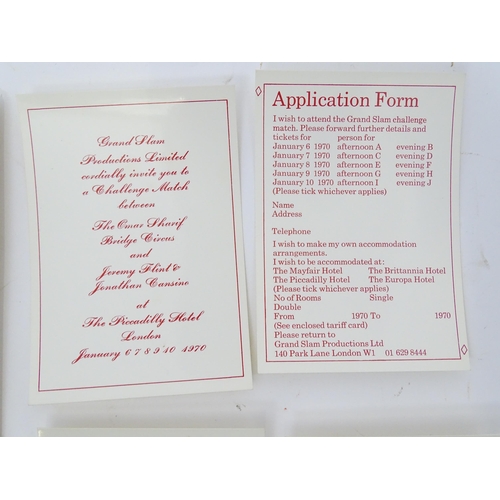 Grand Slam
Productions Limited
cordially invite you to
a Challenge Match
between
The Omar Sharif
Bridge Circus
and
Jeremy Flint &
Jonathan Cansino
at
The Piccadilly Hotel
London
January 6 7 8 9 10 1970
Application Form
I wish to attend the Grand Slam challenge
match. Please forward further details and
tickets for person for
January 6 1970 afternoon A evening B
January 7 1970 afternoon C evening D
January 8 1970 afternoon E evening F
January 9 1970 afternoon G evening H
January 10 1970 afternoon I evening J
(Please tick whichever applies)
Name
Address
Telephone
I wish to make my own accommodation
arrangements.
I wish to be accommodated at:
The Mayfair Hotel The Brittannia Hotel
The Piccadilly Hotel The Europa Hotel
(Please tick whichever applies)
No of Rooms Single
Double
From 1970 To 1970
(See enclosed tariff card)
Please return to
Grand Slam Productions Ltd
140 Park Lane London W1 01 629 8444